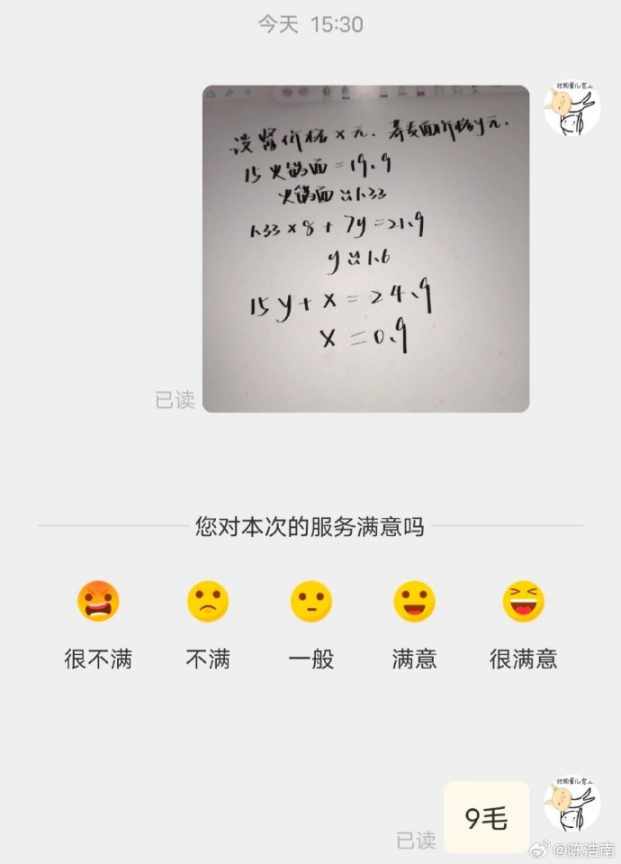 今天 15:30
设窝价格x元.荞麦面价格y元.
15火锅面=19.9
火锅面≈1.33
1.33×8+7y=21.9
y≈1.6
15y+x=24.9
x=0.9
已读
您对本次的服务满意吗
很不满 不满 一般 满意 很满意
9毛
已读
@陈浩南